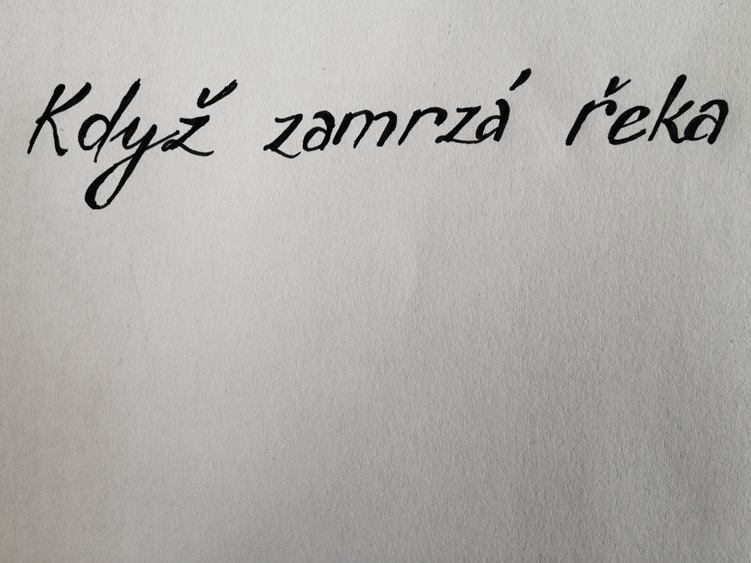 Když zamrzá řeka